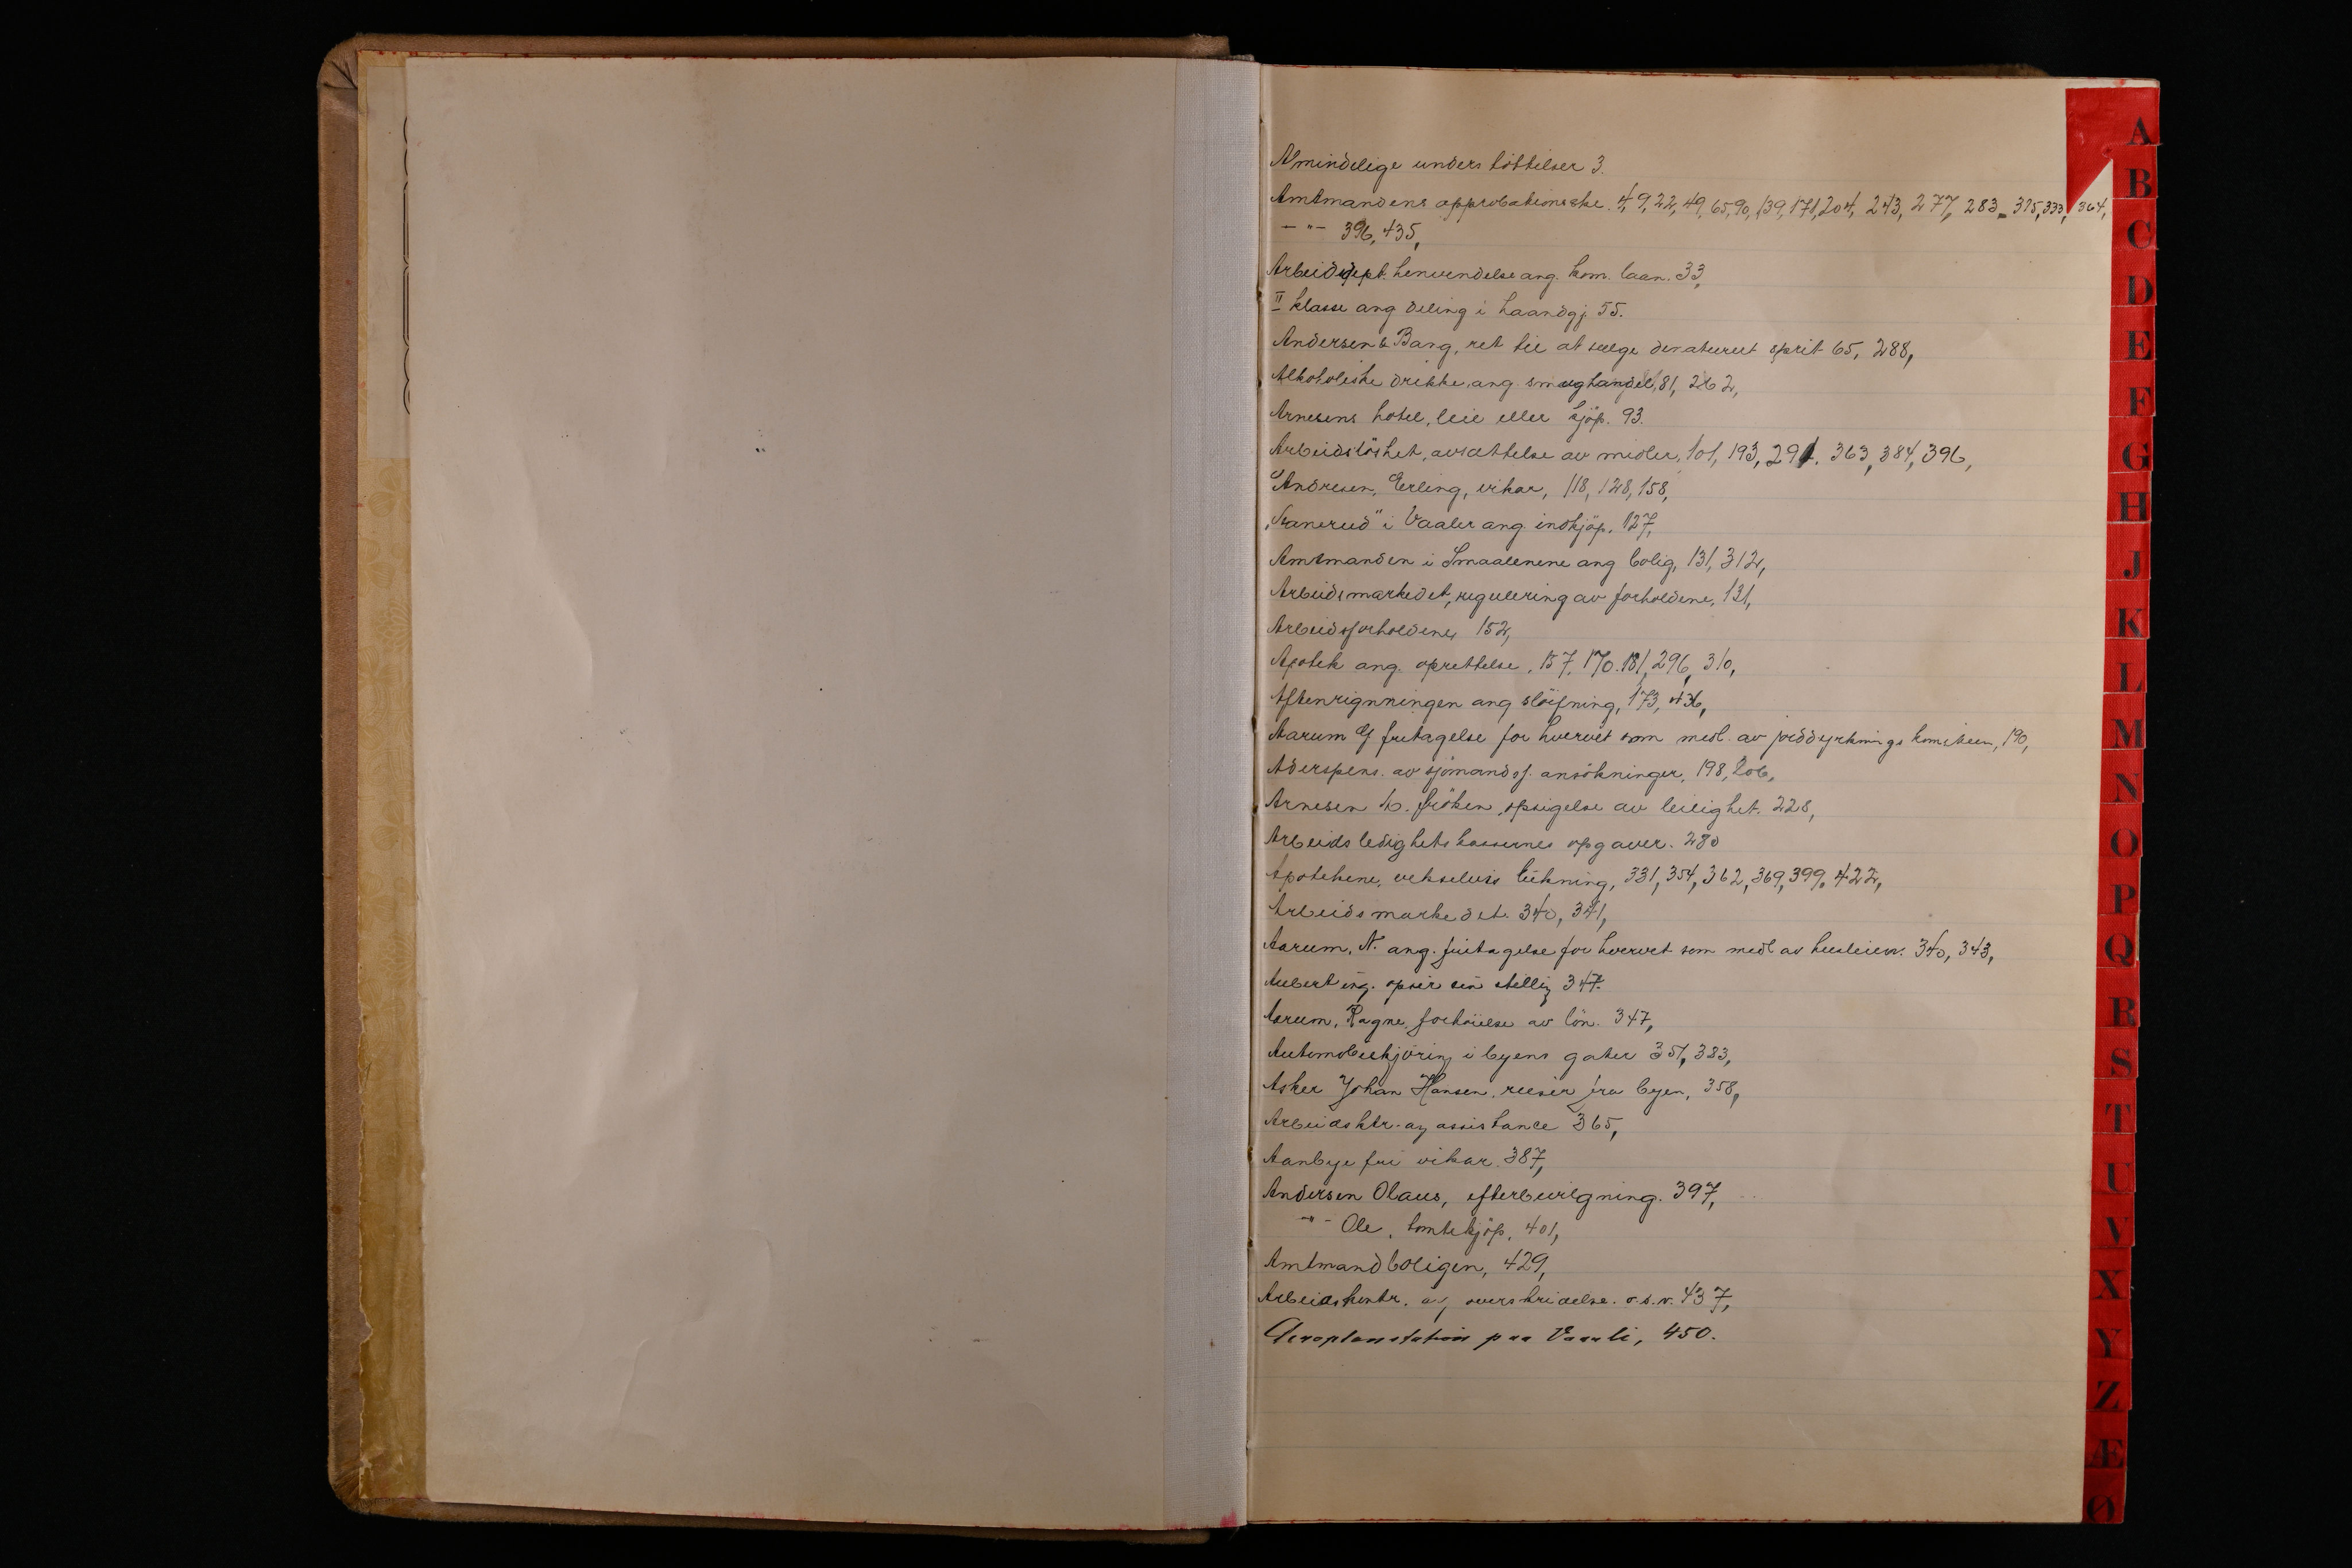 Almindelige understöttelser 3.
Amtmandens approbationsskr. 4, 9, 22, 49, 65, 90, 139, 171, 204, 243, 277, 283, 315, 333, 364,
— " — 396, 435,
Arbeidsdept. henvendelse ang. kom. laan. 33,
II klasse ang deling i haandgj. 55.
Andersen & Bang, ret til at sælge denaturert sprit 65, 288,
Alkoholiske drikke, ang. smughandel, 81, 262,
Arnesens hotel, leie eller kjöp. 93.
Arbeidslöshet, avsættelse av midler, 101, 193, 291, 363, 384, 396,
Andresen, Erling, vikar, 118, 128, 158,
"Aanerud" i Vaaler ang. indkjöp, 127,
Amtmanden i Smaalenene ang bolig, 131, 312,
Arbeidsmarkedet, regulering av forholdene, 131,
Arbeidsforholdene, 152,
Apotek ang. oprettelse, 157, 170. 181, 296, 310,
Aftenrigningen ang slöifning, 173, 436,
Aarum G fritagelse for hvervet som medl. av jorddyrknings komiteen, 190,
Alderspens. av sjömandsf. ansökninger, 198, 206,
Arnesen H. fröken, opsigelse av leilighet. 228,
Arbeidsledighetskassernes opgaver. 280
Apotekene, vekselvis lukning, 331, 354, 362, 369, 399, 422,
Arbeidsmarkedet. 340, 341,
Aarum, N. ang. fritagelse for hvervet som medl av husleien. 340, 343,
Aubert ing. opsir sin stillig 347.
Aarum, Ragna, forhöielse av lön. 347,
Automobilkjöring i byens gater 351, 383,
Asker Johan Hansen, reiser fra byen, 358,
Arbeidsktr. ag assistance 365,
Aanbye fri vikar. 387,
Andersen Olaus, efterbevilgning. 397,
— " — Ole, tomtekjöp, 401,
Amtmandboligen, 429,
Arbeidskontr. ang overskridelse. o.s.v. 437,
Aeroplanstation paa Vaarli, 450.
A
B
C
D
E
F
G
H
J
K
L
M
N
O
P
Q
R
S
T
U
V
X
Y
Z
Æ
Ø